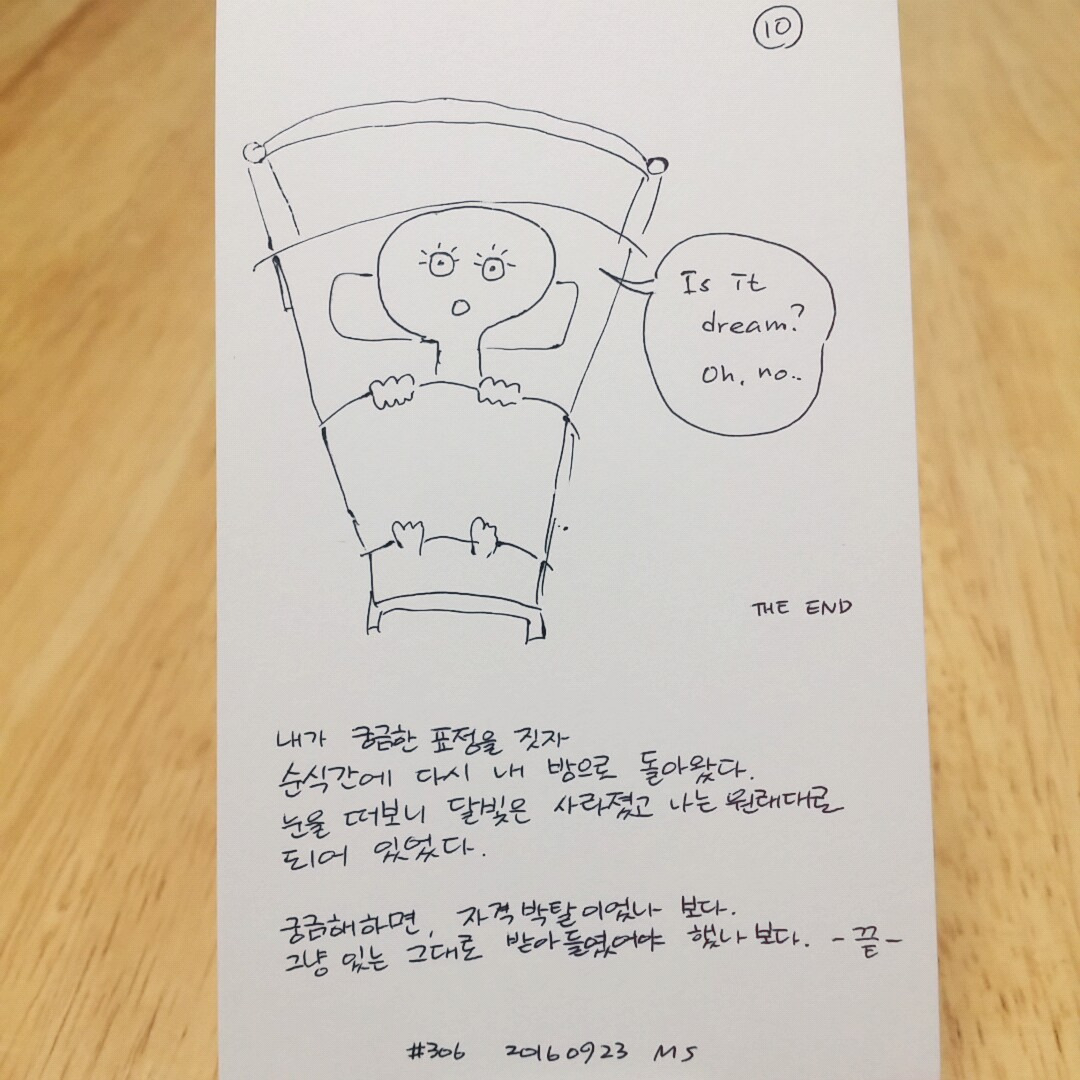 10
Is it
dream?
Oh, no..
THE END
내가 궁금한 표정을 짓자
순식간에 다시 내 방으로 돌아왔다.
눈을 떠보니 달빛은 사라졌고 나는 원래대로
되어 있었다.
궁금해하면, 자격박탈이었나 보다.
그냥 있는 그대로 받아들였어야 했나보다. -끝-
#306 20160923 MS